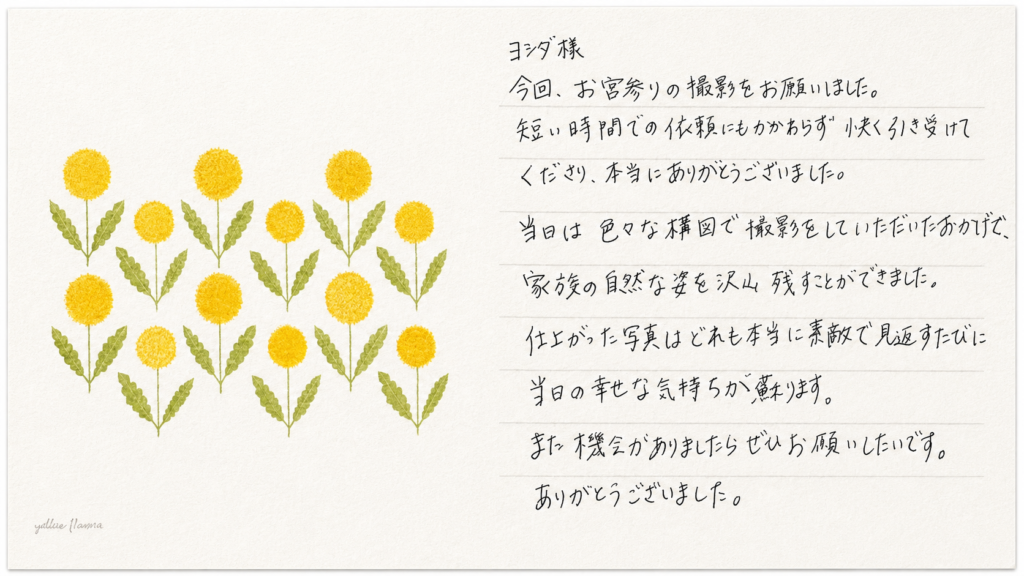 ヨシダ様
今回、お宮参りの撮影をお願いしました。
短い時間での依頼にもかかわらず 快く引き受けて
くださり、本当にありがとうございました。
当日は 色々な構図で 撮影をしていただいたおかげで、
家族の自然な姿を沢山 残すことができました。
仕上がった写真はどれも本当に素敵で見返すたびに
当日の幸せな気持ちが蘇ります。
また 機会がありましたら ぜひお願いしたいです。
ありがとうございました。